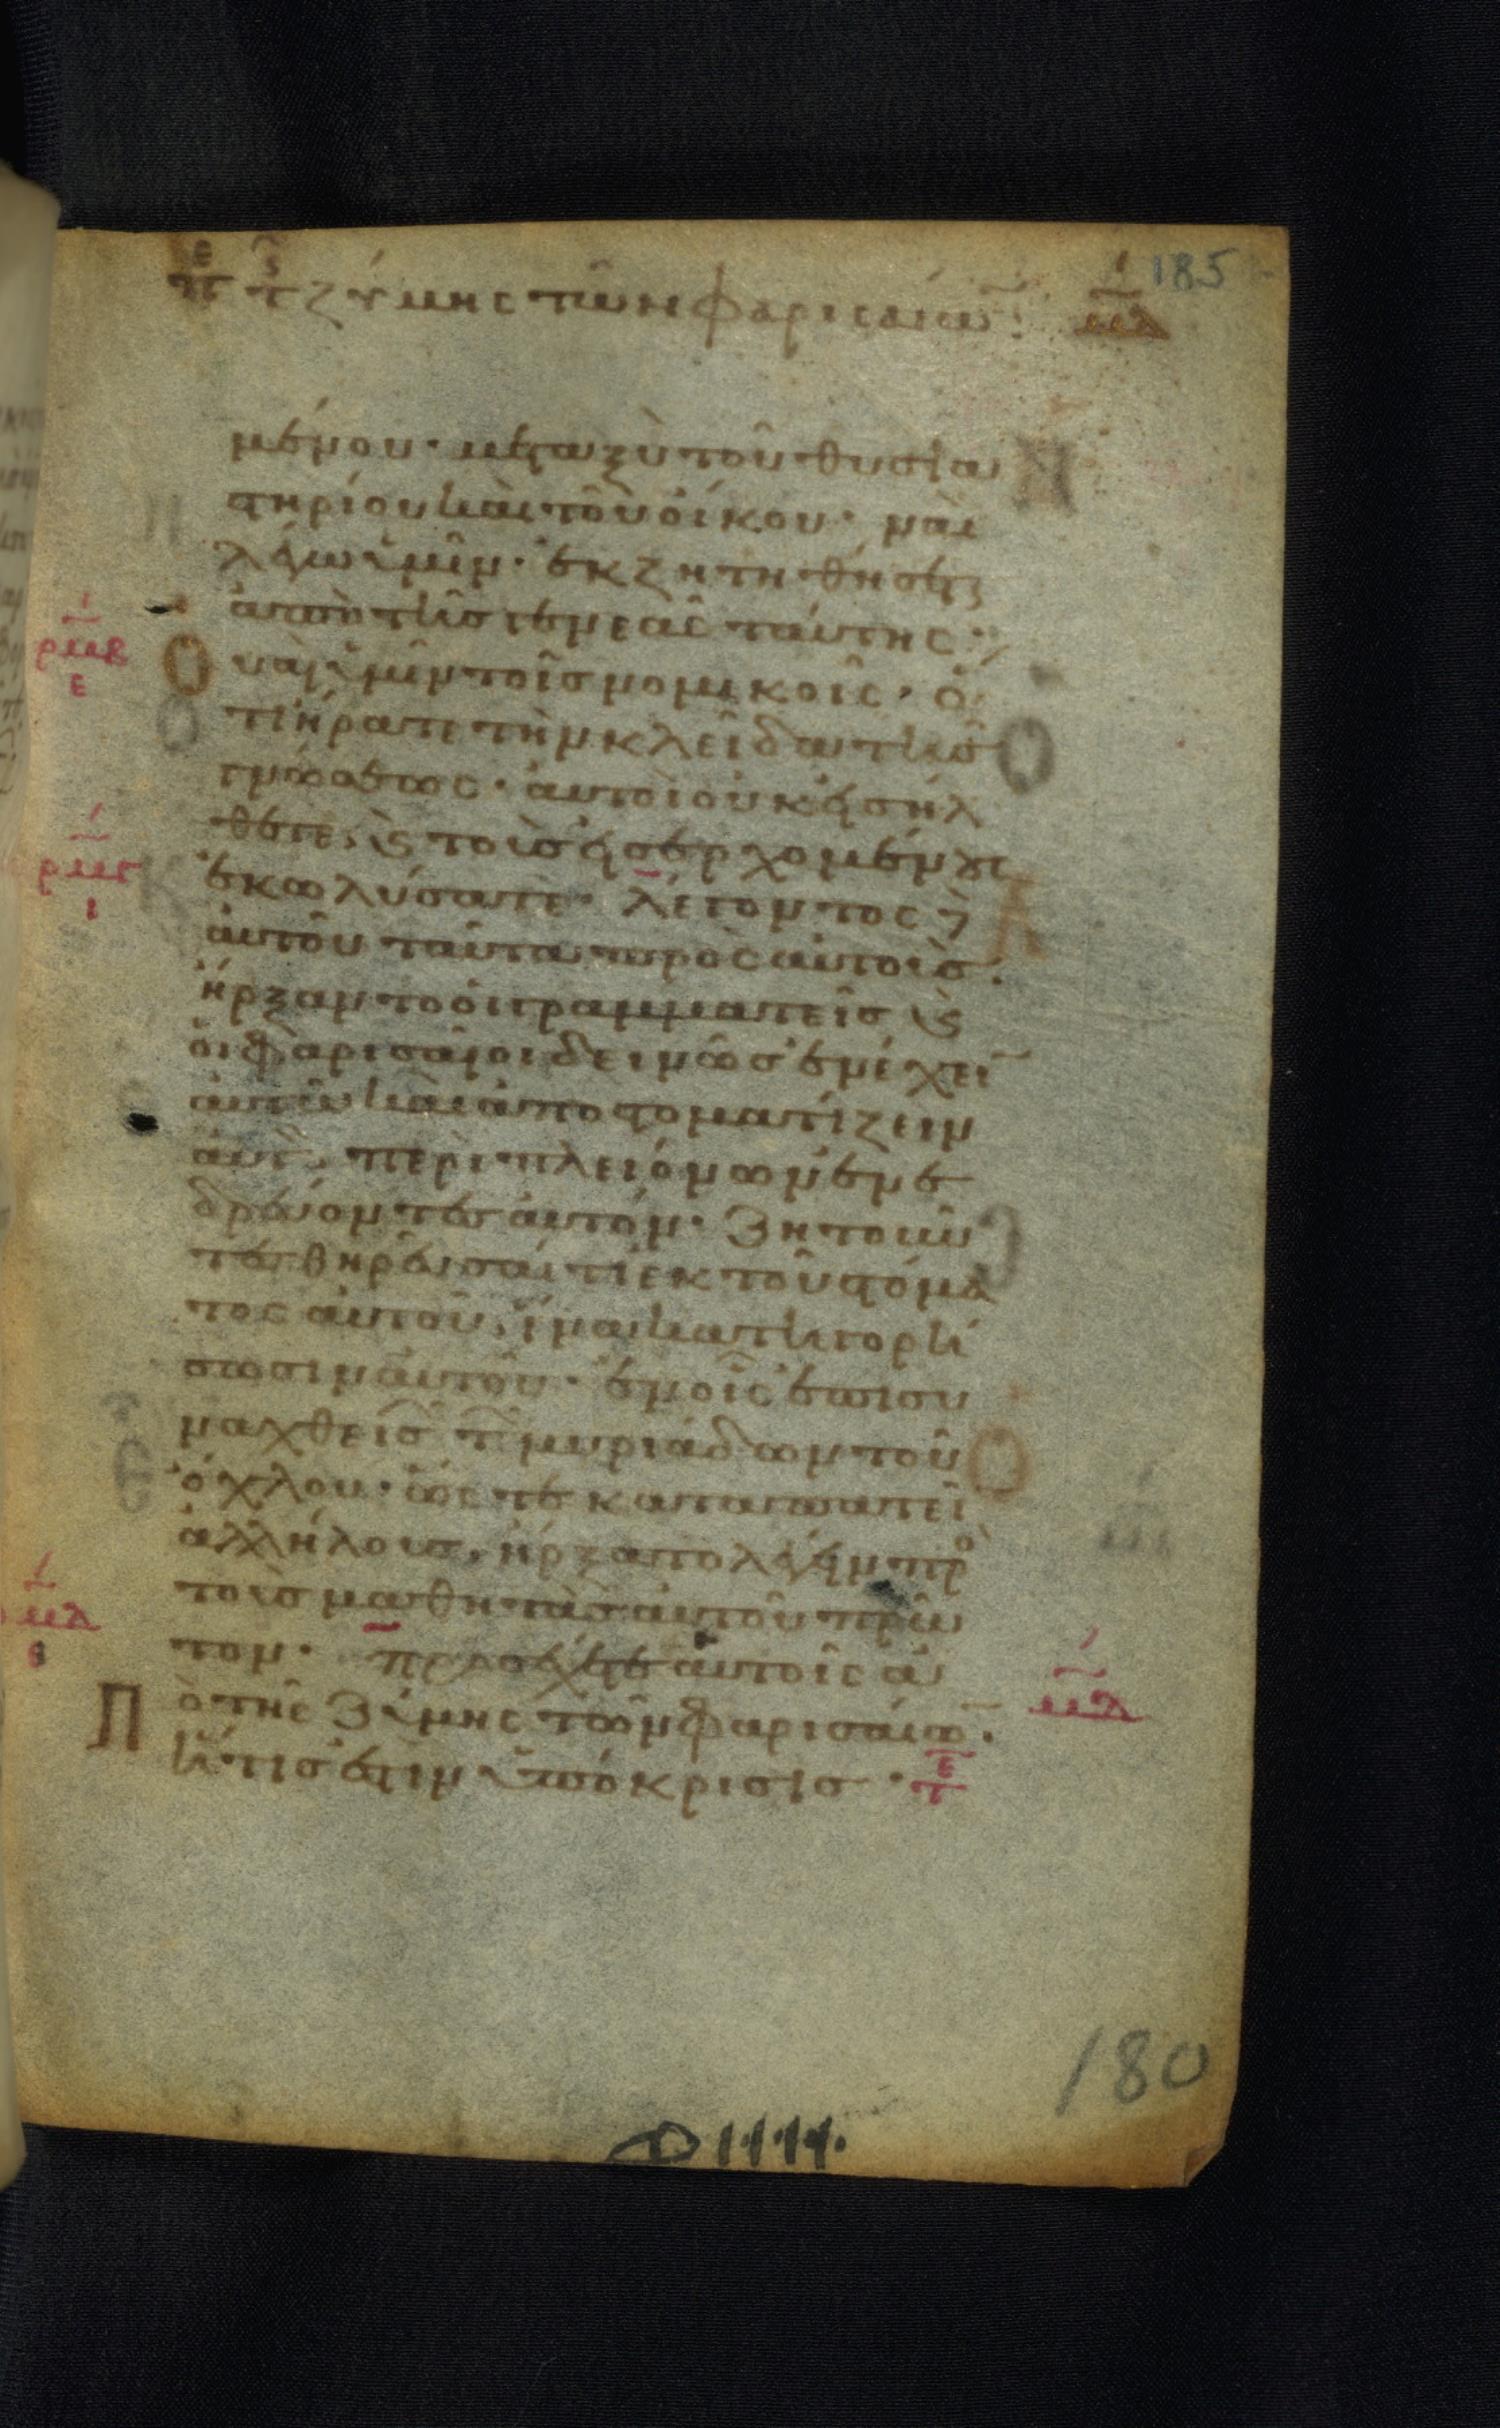 πε τ ζύμης τῶν φαρισαίω̅ μ̅α̅ 185
μένου· μεταξὺ τοῦ θυσια
στηρίου καὶ τοῦ οἴκου· ναὶ
λέγω ὑμῖν· ἐκζητηθήσεται
ἀπὸ τῆς γενεᾶς ταύτης·
ρμβ
ε
Οὐαὶ ὑμῖν τοῖς νομικοῖς· ὅ
τι ἤρατε τὴν κλεῖδα τῆς
γνώσεως· αὐτοὶ οὐκ εἰσήλ
θετε, ϗ τοὺς εἰσερχομένους
ἐκωλύσατε· λέγοντος δ
αὐτοῦ ταῦτα πρὸς αὐτούς·
ἤρξαντο οἱ γραμματεῖς ϗ
οἱ φαρισαῖοι δεινῶς ἐνέχει̅
αὐτῶ καὶ ἀποστοματίζειν
αὐτὸν περὶ πλειόνων ἐνε
δρεύοντες αὐτόν· ζητοῦν
τες θηρεῦσαί τι ἐκ τοῦ στόμα
τος αὐτοῦ, ἵνα κατηγορή
σωσιν αὐτοῦ· ἐν οἷς ἐπισυ
ναχθεισῶν τῶν μυριάδων τοῦ
ὄχλου· ὥστε καταπατεῖν
ἀλλήλους, ἤρξατο λέγειν πρὸ
τοὺς μαθητὰς αὐτοῦ πρῶ
ρμδ
τον· προσέχετε ἑαυτοῖς ἀ
μ̅α̅
Πὸ τῆς ζύμης τῶν φαρισαίω̅·
ἥτις ἐστὶν ὑπόκρισις· τε
180